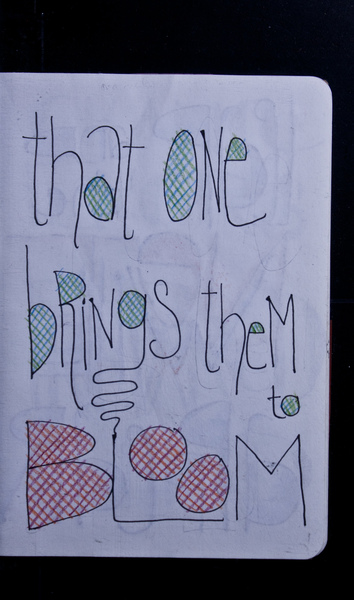 that ONe
bRiNgS theM
to
BLOOM